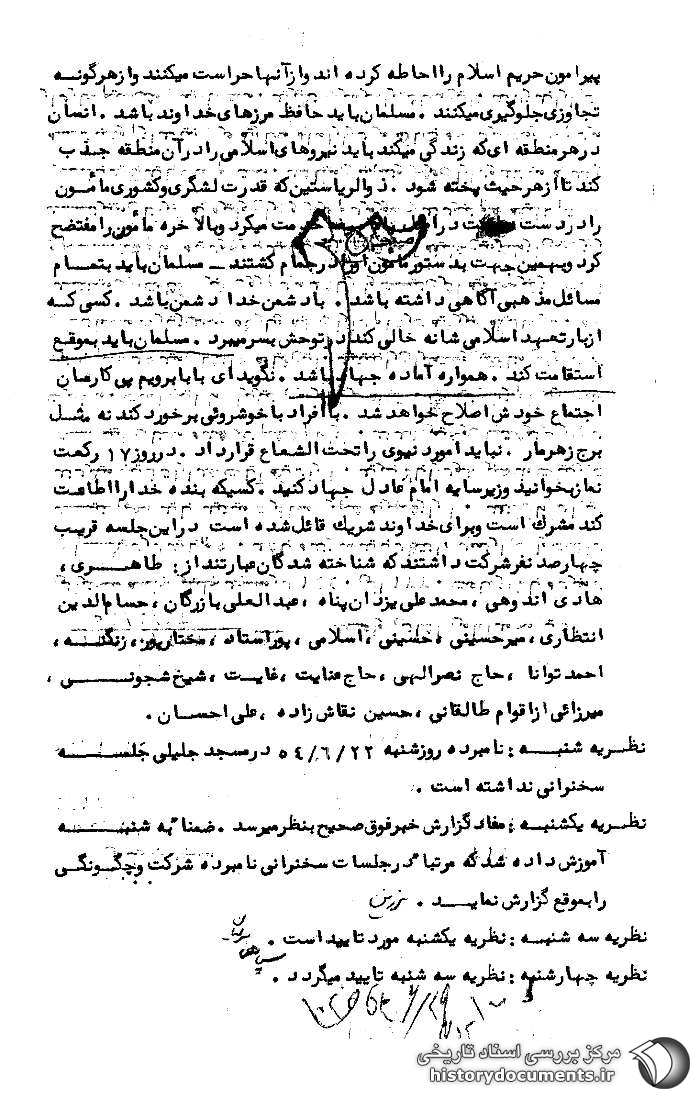 پیرامون حریم اسلام را احاطه کرده اند و از آنها حراست میکنند و از هرگونه
تجاوزی جلوگیری میکنند . مسلمان باید حافظ مرزهای خداوند باشد . انسان
در هر منطقه ای که زندگی میکند باید نیروهای اسلامی را در آن منطقه جذب
کند تا از هر حیث پخته شود . ذوالریاستین که قدرت لشگری و کشوری مأمون
را در دست داشت در میکرد و بالاخره مأمون را مفتضح
کرد و بهمین جهت بدستور مأمون او را در حمام کشتند ـ مسلمان باید بتمام
مسائل مذهبی آگاهی داشته باشد . با دشمن خدا دشمن باشد . کسی که
از بار تعهد اسلامی شانه خالی کند در توحش بسر میبرد . مسلمان باید بموقع
استقامت کند . همواره آماده جهاد باشد . نگوید ای بابا برویم پی کارمان
اجتماع خودش اصلاح خواهد شد . با افراد با خوشروئی برخورد کند نه مثل
برج زهرمار . نباید امور دنیوی را تحت الشعاع قرار داد . در روز ۱۷ رکعت
نماز بخوانید و زیر سایه امام عادل جهاد کنید . کسیکه بنده خدا را اطاعت
کند مشرک است و برای خداوند شریک قائل شده است در این جلسه قریب
چهارصد نفر شرکت داشتند که شناخته شدگان عبارتند از : طاهری ،
هادی اندوهی ، محمد علی یزدان پناه ، عبدالعلی بازرگان ، حسام الدین
انتظاری ، میرحسینی ، حسینی ، اسلامی ، پوراستاد ، مختارپور ، زنگنه ،
احمد توانا ، حاج نصرالهی ، حاج عنایت ، غایت ، شیخ شجونی ،
میرزائی از اقوام طالقانی ، حسین نقاش زاده ، علی احسان .
نظریه شنبه : نامبرده روز شنبه ۵۴/۶/۲۲ در مسجد جلیلی جلسه
سخنرانی نداشته است .
نظریه یکشنبه : مفاد گزارش خبر فوق صحیح بنظر میرسد . ضمناً به شنبه
آموزش داده شد که مرتباً در جلسات سخنرانی نامبرده شرکت و چگونگی
را بموقع گزارش نماید .
نظریه سه شنبه : نظریه یکشنبه مورد تایید است .
نظریه چهارشنبه : نظریه سه شنبه تایید میگردد .
مرکز بررسی اسناد تاریخی
historydocuments.ir